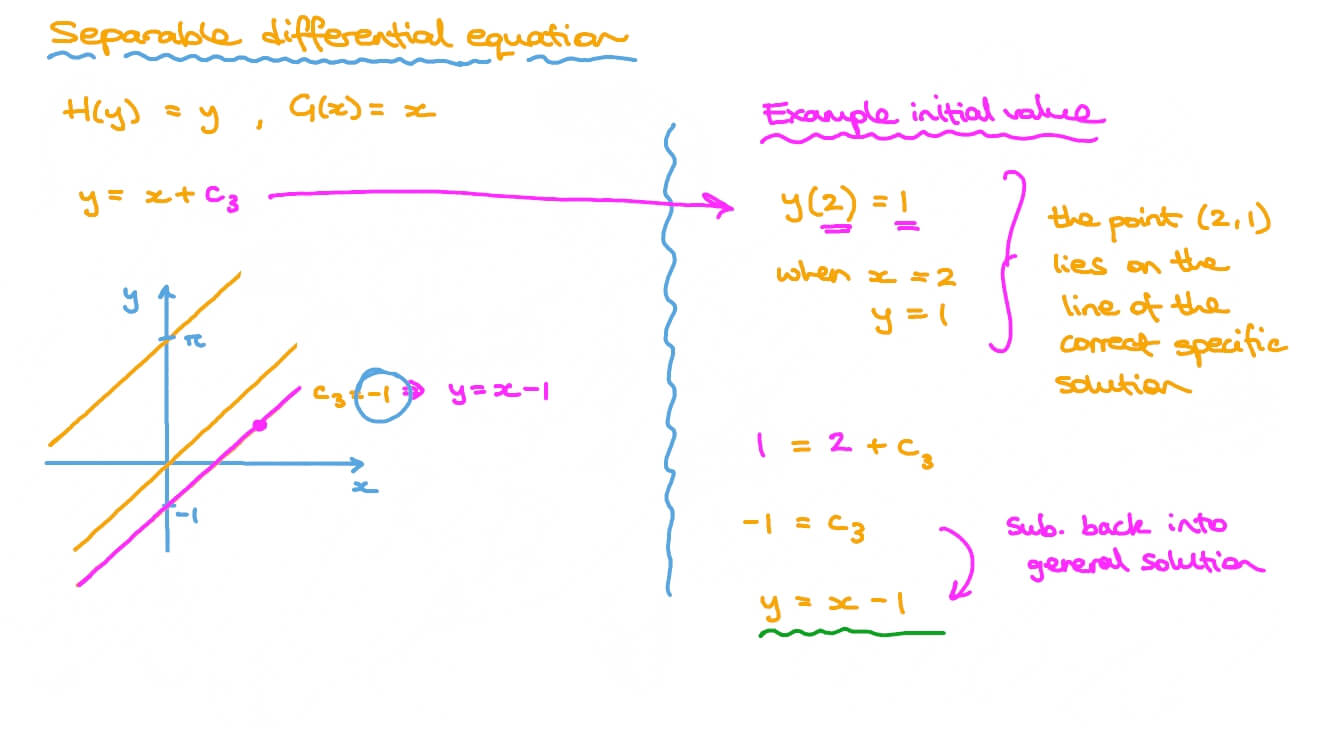 Separable differential equation
H(y) = y , G(x) = x
y = x + c₃
y
π
c₃ = -1 ⇒ y = x - 1
x
-1
Example initial value
y(2) = 1
when x = 2
y = 1
the point (2,1)
lies on the
line of the
correct specific
solution
1 = 2 + c₃
-1 = c₃
sub. back into
general solution
y = x - 1